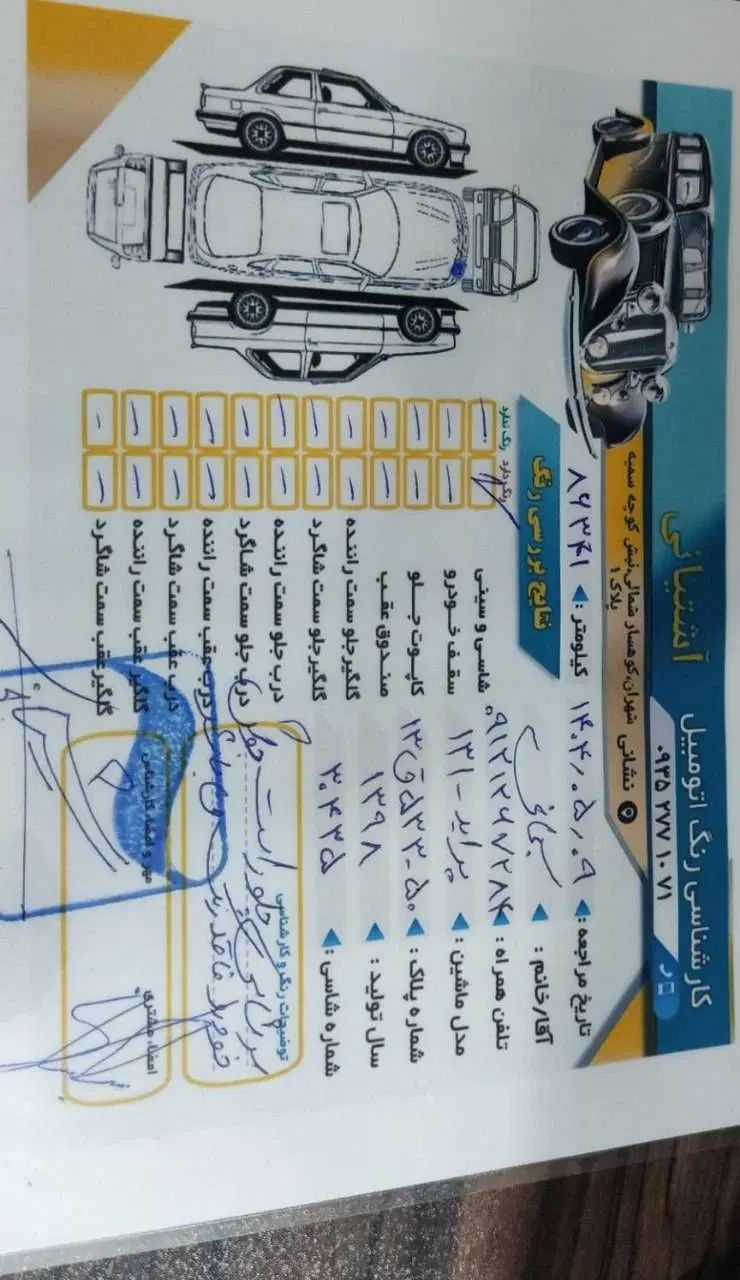 کارشناسی رنگ اتومبیل
آشتیانی
۰۹۳۵ ۲۷۷ ۱۰ ۷۱
نشانی : شهران،کوهسار شمالی،نبش کوچه سمیه
پلاک ۱
تاریخ مراجعه : ۱۴۰۴/۰۵/۰۹
کیلومتر : ۸۶۳۴۱
آقا/خانم :
تلفن همراه : ۰۹۱۲۱۲۹۷۲۸۴
مدل ماشین : پراید - ۱۳۱
شماره پلاک :
سال تولید : ۱۳۹۸
شماره شاسی : ۳۰۴۳۵
نتایج بررسی رنگ
رنگ دارد رنگ ندارد
شاسی و سینی
سقف خودرو
کاپوت جلو
صندوق عقب
گلگیر جلو سمت راننده
گلگیر جلو سمت شاگرد
درب جلو سمت راننده
درب جلو سمت شاگرد
درب عقب سمت راننده
درب عقب سمت شاگرد
گلگیر عقب سمت راننده
گلگیر عقب سمت شاگرد
توضیحات رنگ و کارشناسی
جلو راست
مهر و امضاء کارشناس
امضاء مشتری